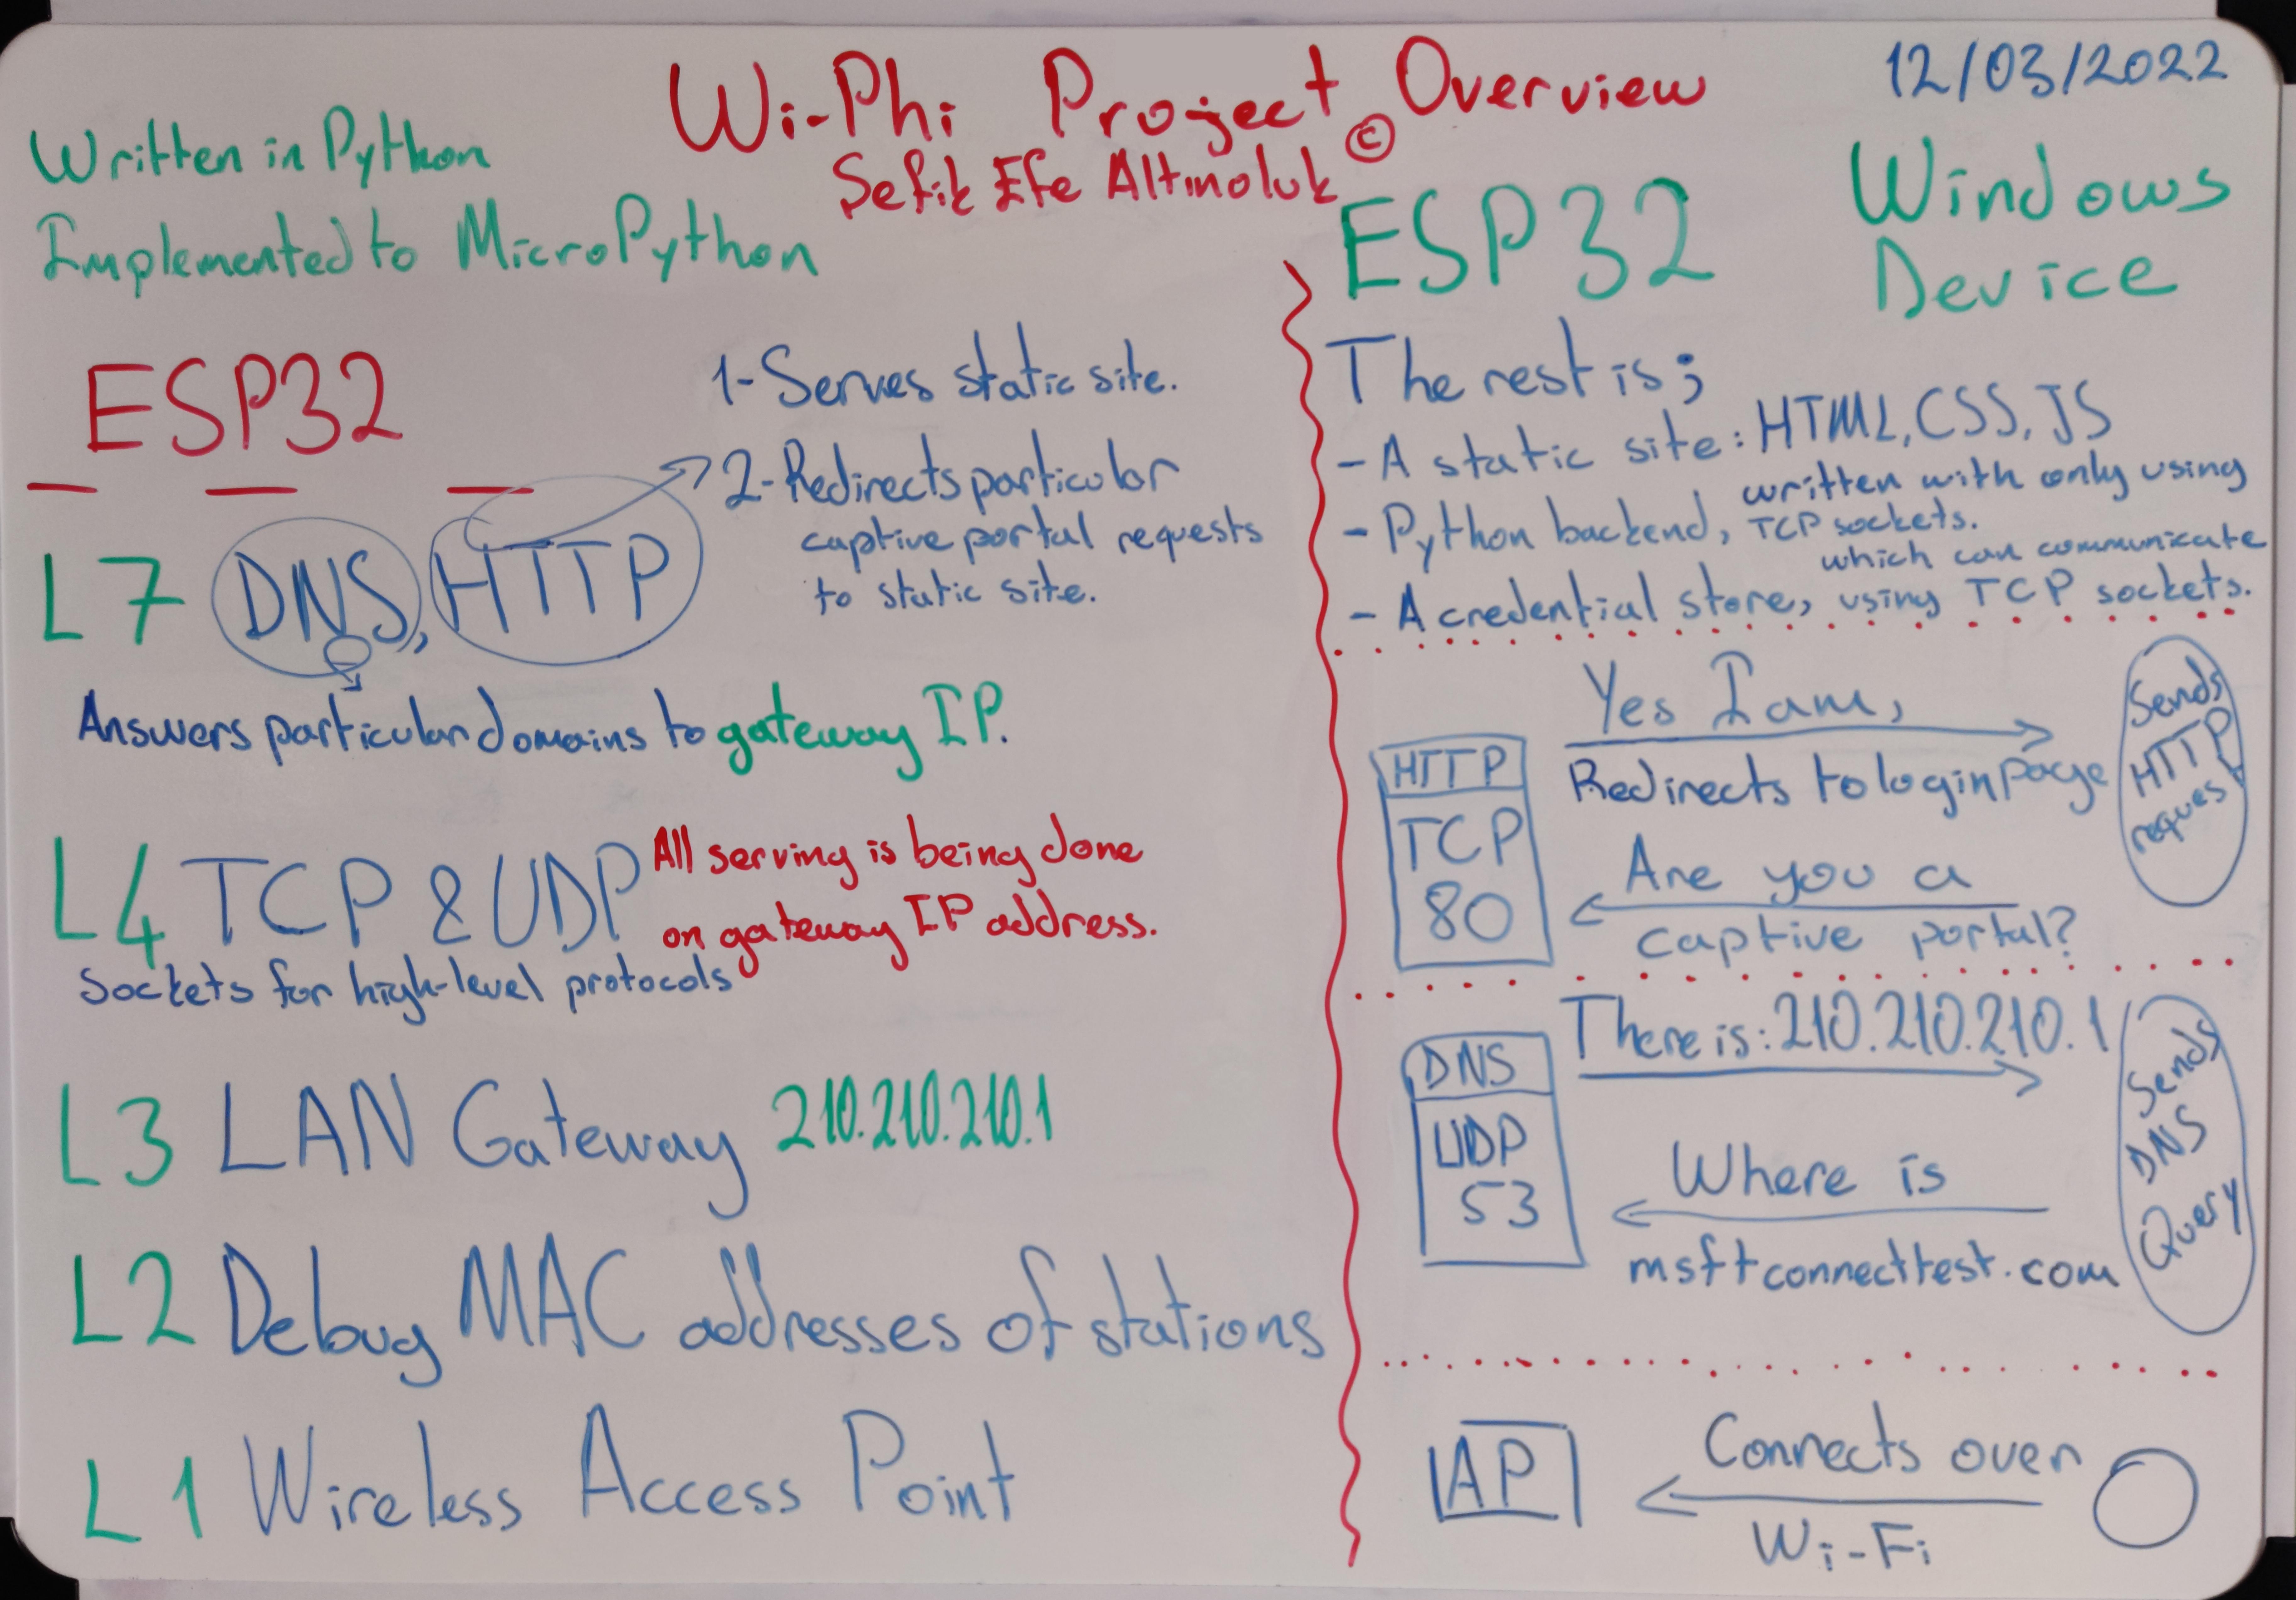 Wi-Phi Project Overview
12/03/2022
Sefik Efe Altinoluk ©
Written in Python
Implemented to MicroPython
ESP32
L7 DNS, HTTP
1- Serves static site.
2- Redirects particular
captive portal requests
to static site.
Answers particular domains to gateway IP.
L4 TCP & UDP
All serving is being done
on gateway IP address.
Sockets for high-level protocols
L3 LAN Gateway 210.210.210.1
L2 Debug MAC addresses of stations
L1 Wireless Access Point
ESP32
Windows
Device
The rest is;
- A static site: HTML, CSS, JS
- Python backend, written with only using
TCP sockets.
- A credential store, which can communicate
using TCP sockets.
HTTP
TCP
80
Yes I am,
Redirects to login page
Are you a
captive portal?
Sends
HTTP
reques
DNS
UDP
53
There is: 210.210.210.1
Where is
msftconnecttest.com
Sends
DNS
Query
AP
Connects over
Wi-Fi